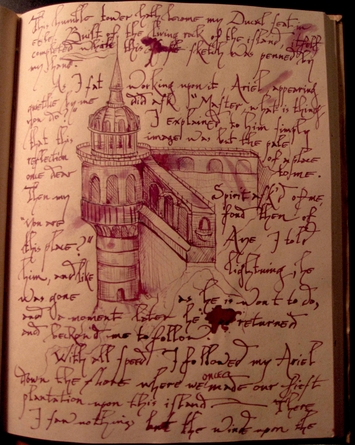 This humble tower hath become my Ducal seat
Built of the living rock of the island
completed this sketch was penned by
my hand.
As I sat working upon it, Ariel appearing
by me did ask "Master, what is thing
you do?" I explained to him simply
that this image was but the pale
reflection of a place
once dear to me.
Then my Spirit ask'd of me,
"You are fond then of
this place?" Aye, I told
him, and like lightning, he
was gone as he is wont to do,
and a moment later he returned
and beckon'd me to follow.
With all speed I followed my Ariel
down the shore where we once made our first
plantation upon this island There
I saw nothing but the wind upon the